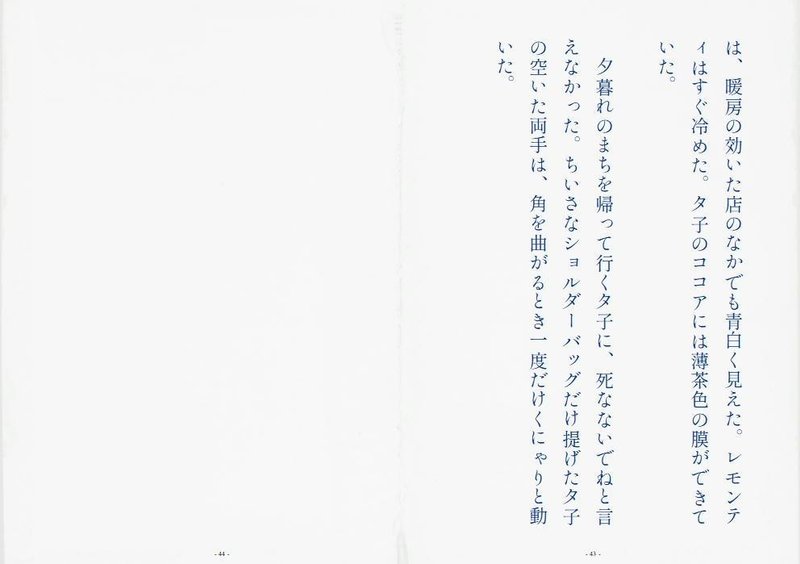 は、暖房の効いた店のなかでも青白く見えた。レモンテ
ィはすぐ冷めた。タ子のココアには薄茶色の膜ができて
いた。
　夕暮れのまちを帰って行くタ子に、死なないでねと言
えなかった。ちいさなショルダーバッグだけ提げたタ子
の空いた両手は、角を曲がるとき一度だけくにゃりと動
いた。
- 43 -
- 44 -